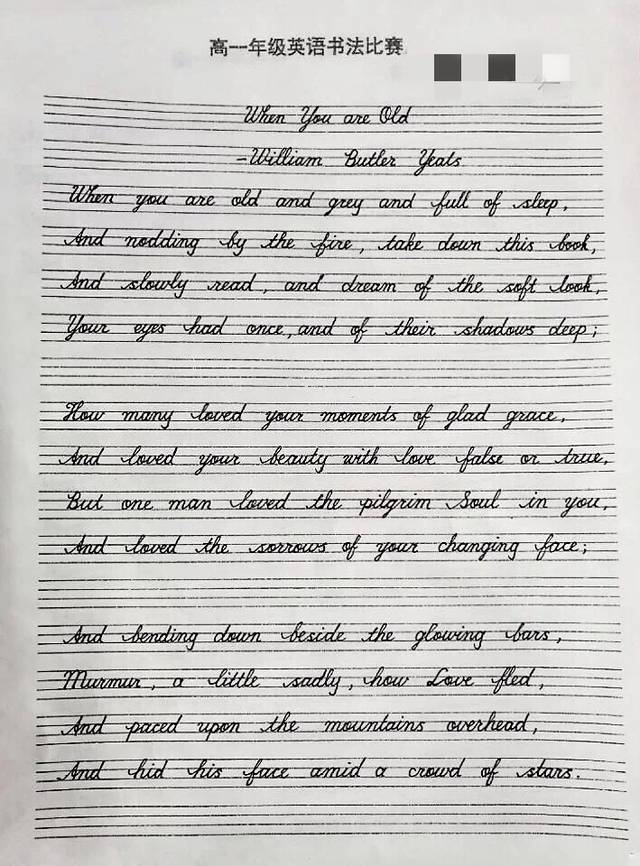 高一年级英语书法比赛
When You are Old
-William Butler Yeats
When you are old and grey and full of sleep,
And nodding by the fire, take down this book,
And slowly read, and dream of the soft look,
Your eyes had once, and of their shadows deep;
How many loved your moments of glad grace,
And loved your beauty with love false or true,
But one man loved the pilgrim Soul in you,
And loved the sorrows of your changing face;
And bending down beside the glowing bars,
Murmur, a little sadly, how Love fled,
And paced upon the mountains overhead,
And hid his face amid a crowd of stars.